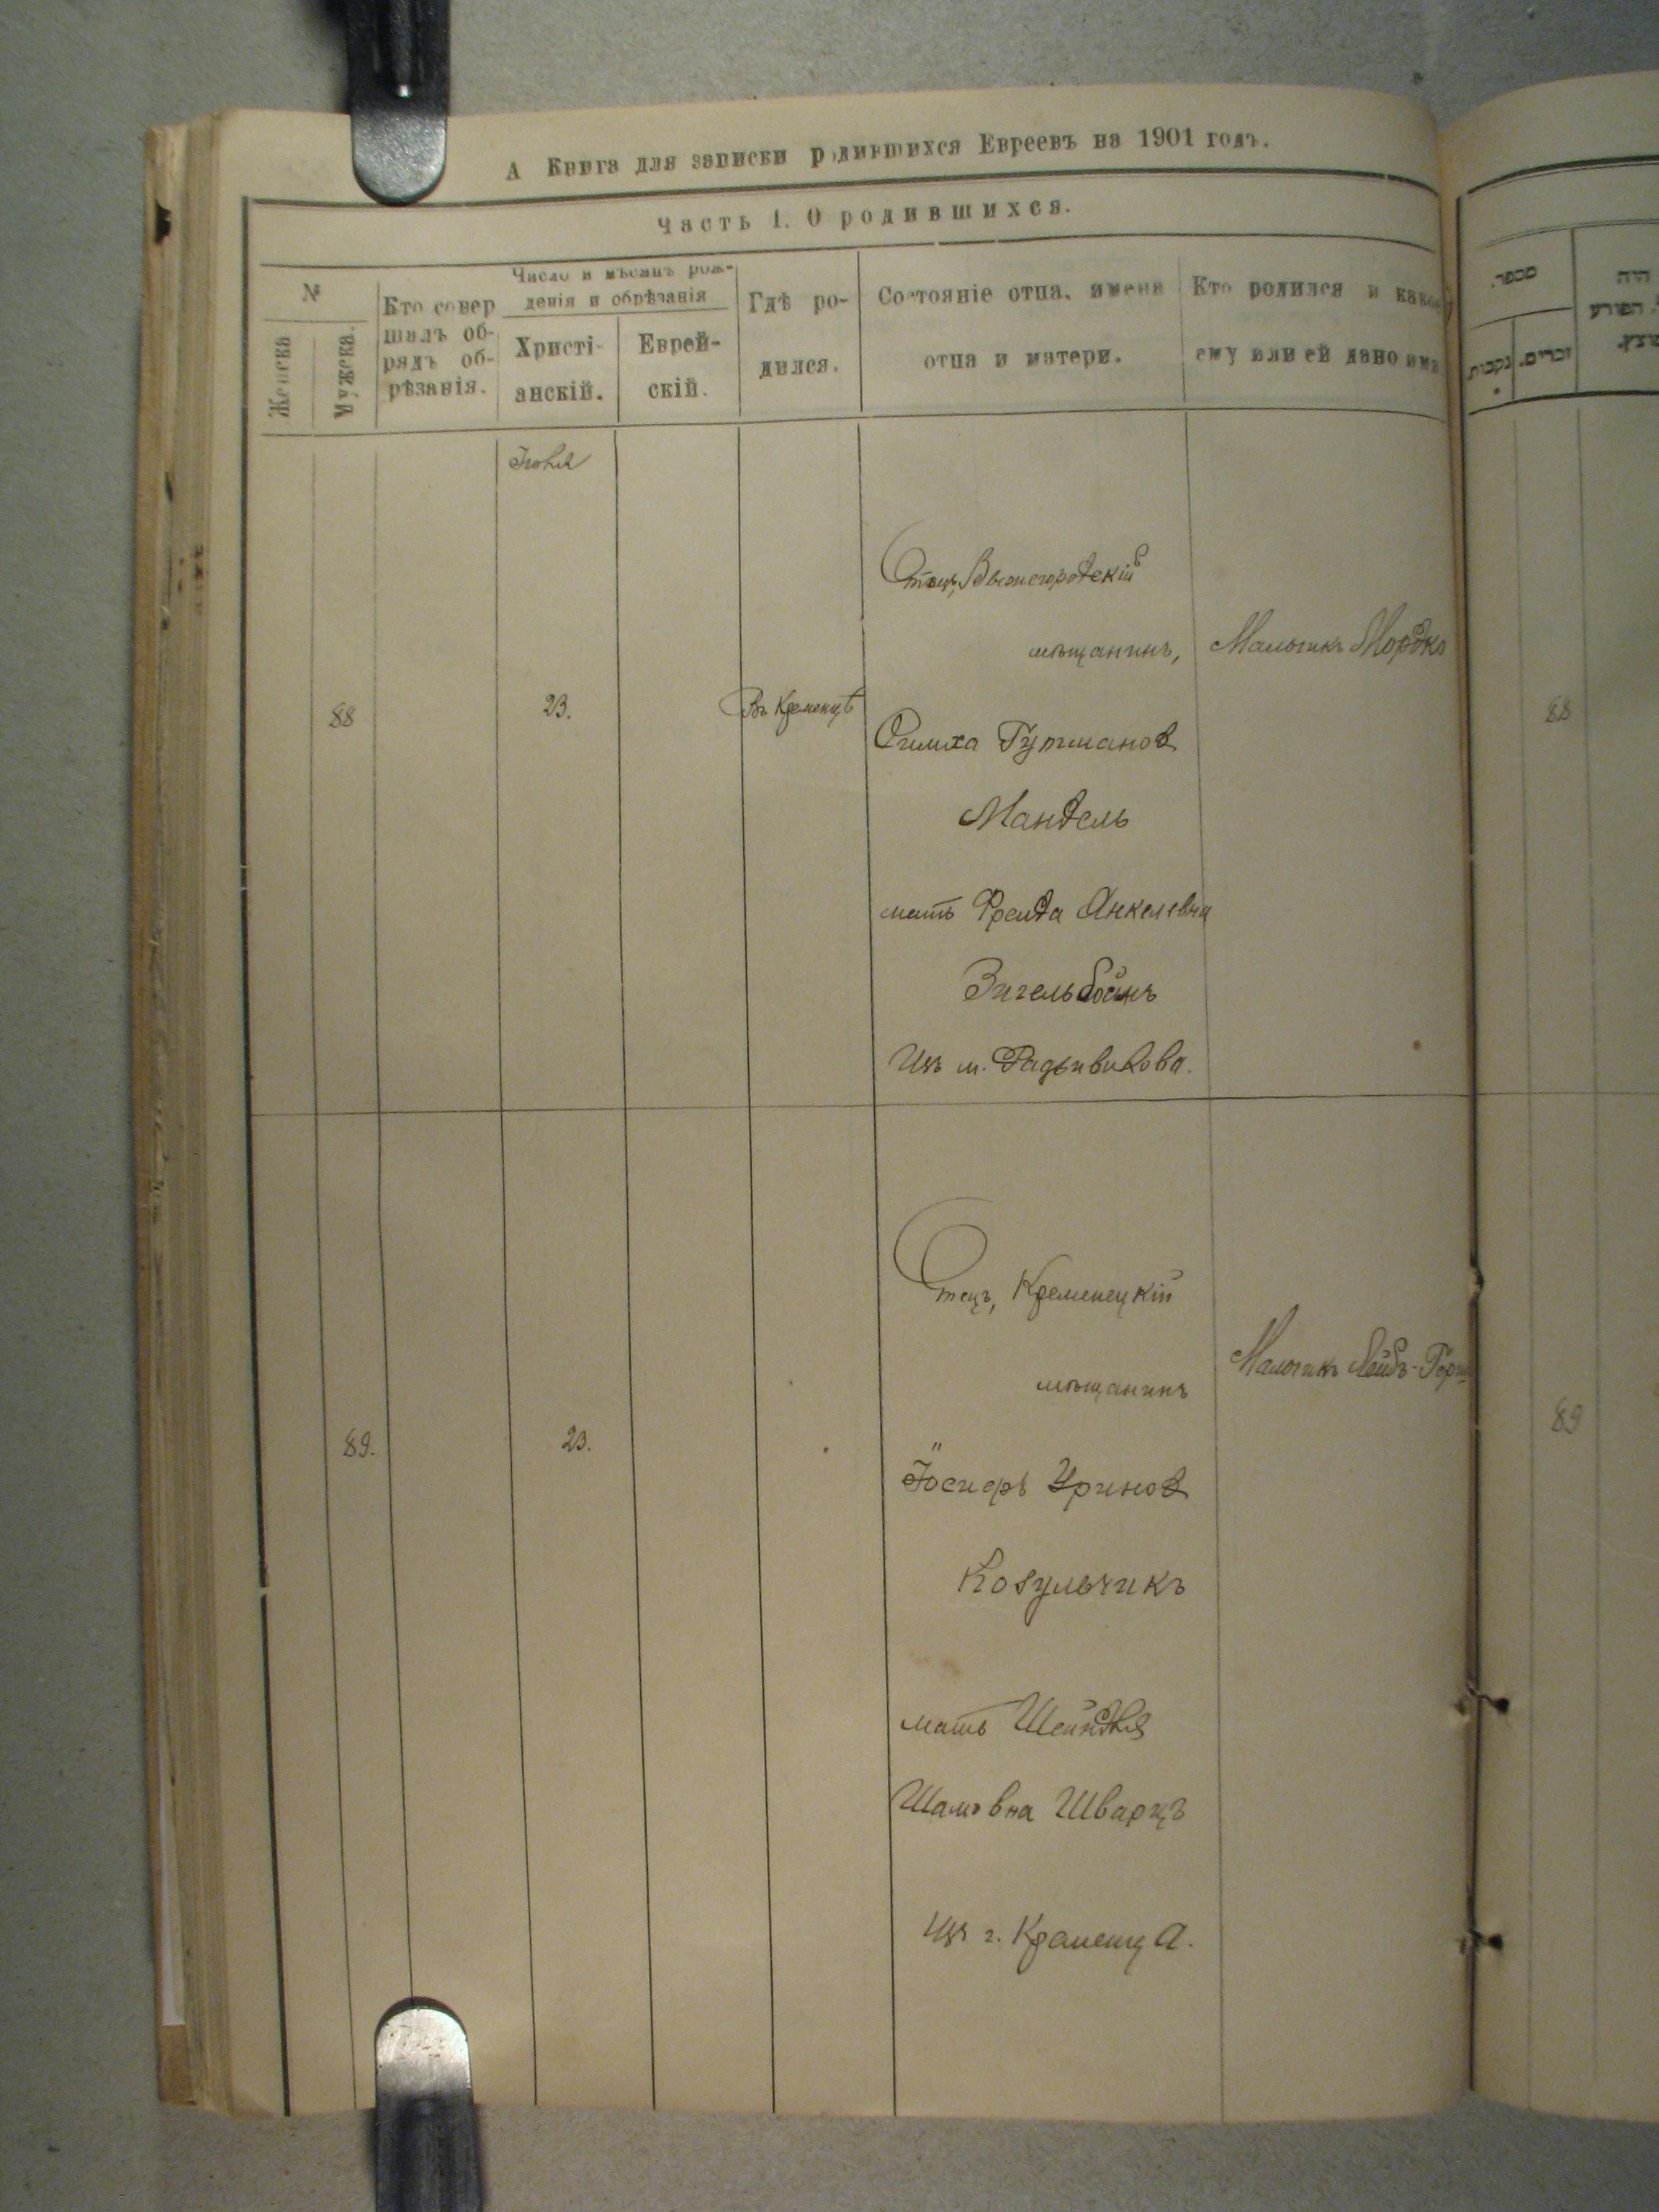 А Книга для записки родившихся Евреевъ на 1901 годъ.
Часть 1. О родившихся.
№
Женска
Мужска.
Кто совер
шалъ об-
рядъ об-
рѣзанія.
Число и мѣсяцъ рож-
денія и обрѣзанія
Христі-
анскій.
Еврей-
скій.
Гдѣ ро-
дился.
Состояніе отца, имена
отца и матери.
Кто родился и какое
ему или ей дано имя
מספר.
נקבות
זכרים.
היה
הפורע
Іюля
88
23.
Въ Кременцѣ
Отецъ, Вышегородскій
мѣщанинъ,
Симха Гутманов
Мандель
мать Фрейда Янкелевна
Зигельбоймъ
Изъ м. Радзивилова.
Мальчикъ Мордко
88
89.
23.
Отецъ, Кременецкій
мѣщанинъ
Іосифъ Уринов
Козульчикъ
мать Шейндля
Шамовна Шварцъ
Изъ г. Кременца.
Мальчикъ Лейбъ-Герш
89